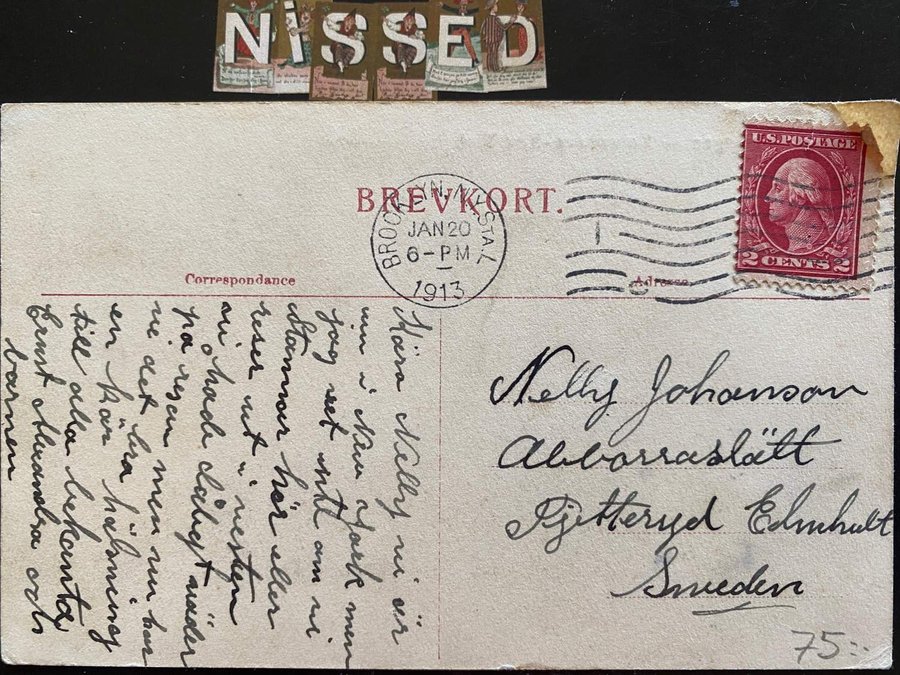 NiSSED
BREVKORT.
BROOKLYN, N.Y. STA. L
JAN 20
6-PM
1913
U.S. POSTAGE
2 CENTS 2
Correspondance
Adresse
Kära Nelly ni är
nu i New York men
jag vet intt om ni
stannar här eller
reser ut i vesten
vi hade dåligt väder
på resan men nu har
vi det bra
en kär hälsning
till alla bekanta
Ernst Alexandra och
barnen
Nelly Johanson
Abborraslätt
Pjetteryd Elmhult
Sweden
75:-